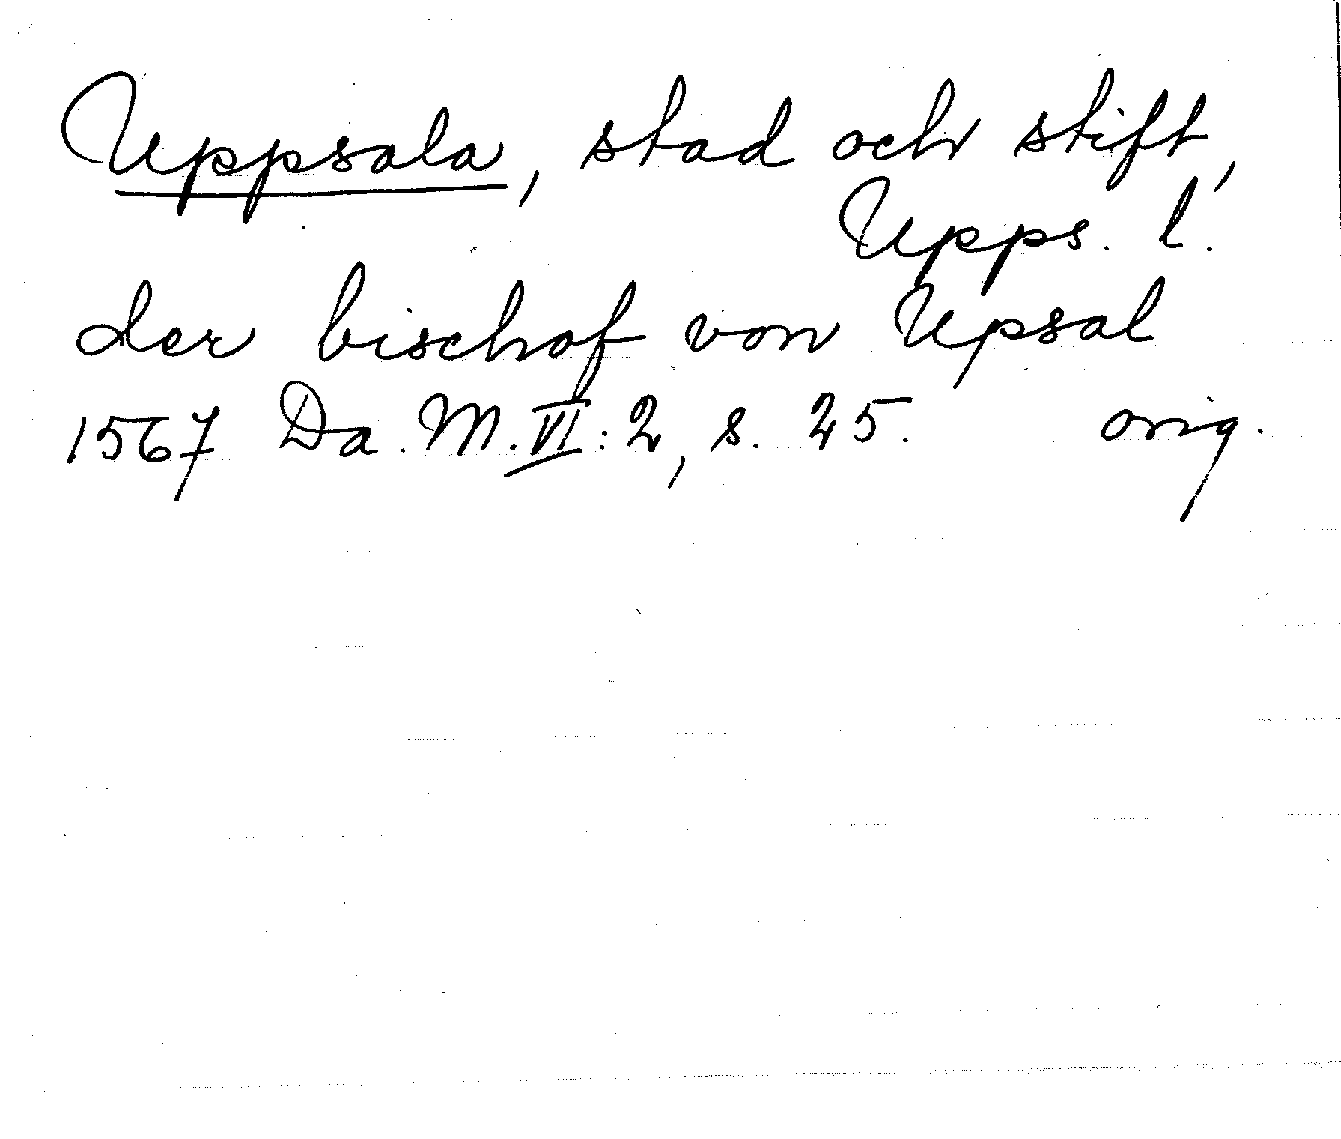 Uppsala, stad och stift,
Upps. l.
der bischof von Upsal
1567 Da. M. VI: 2, s. 25. orig.